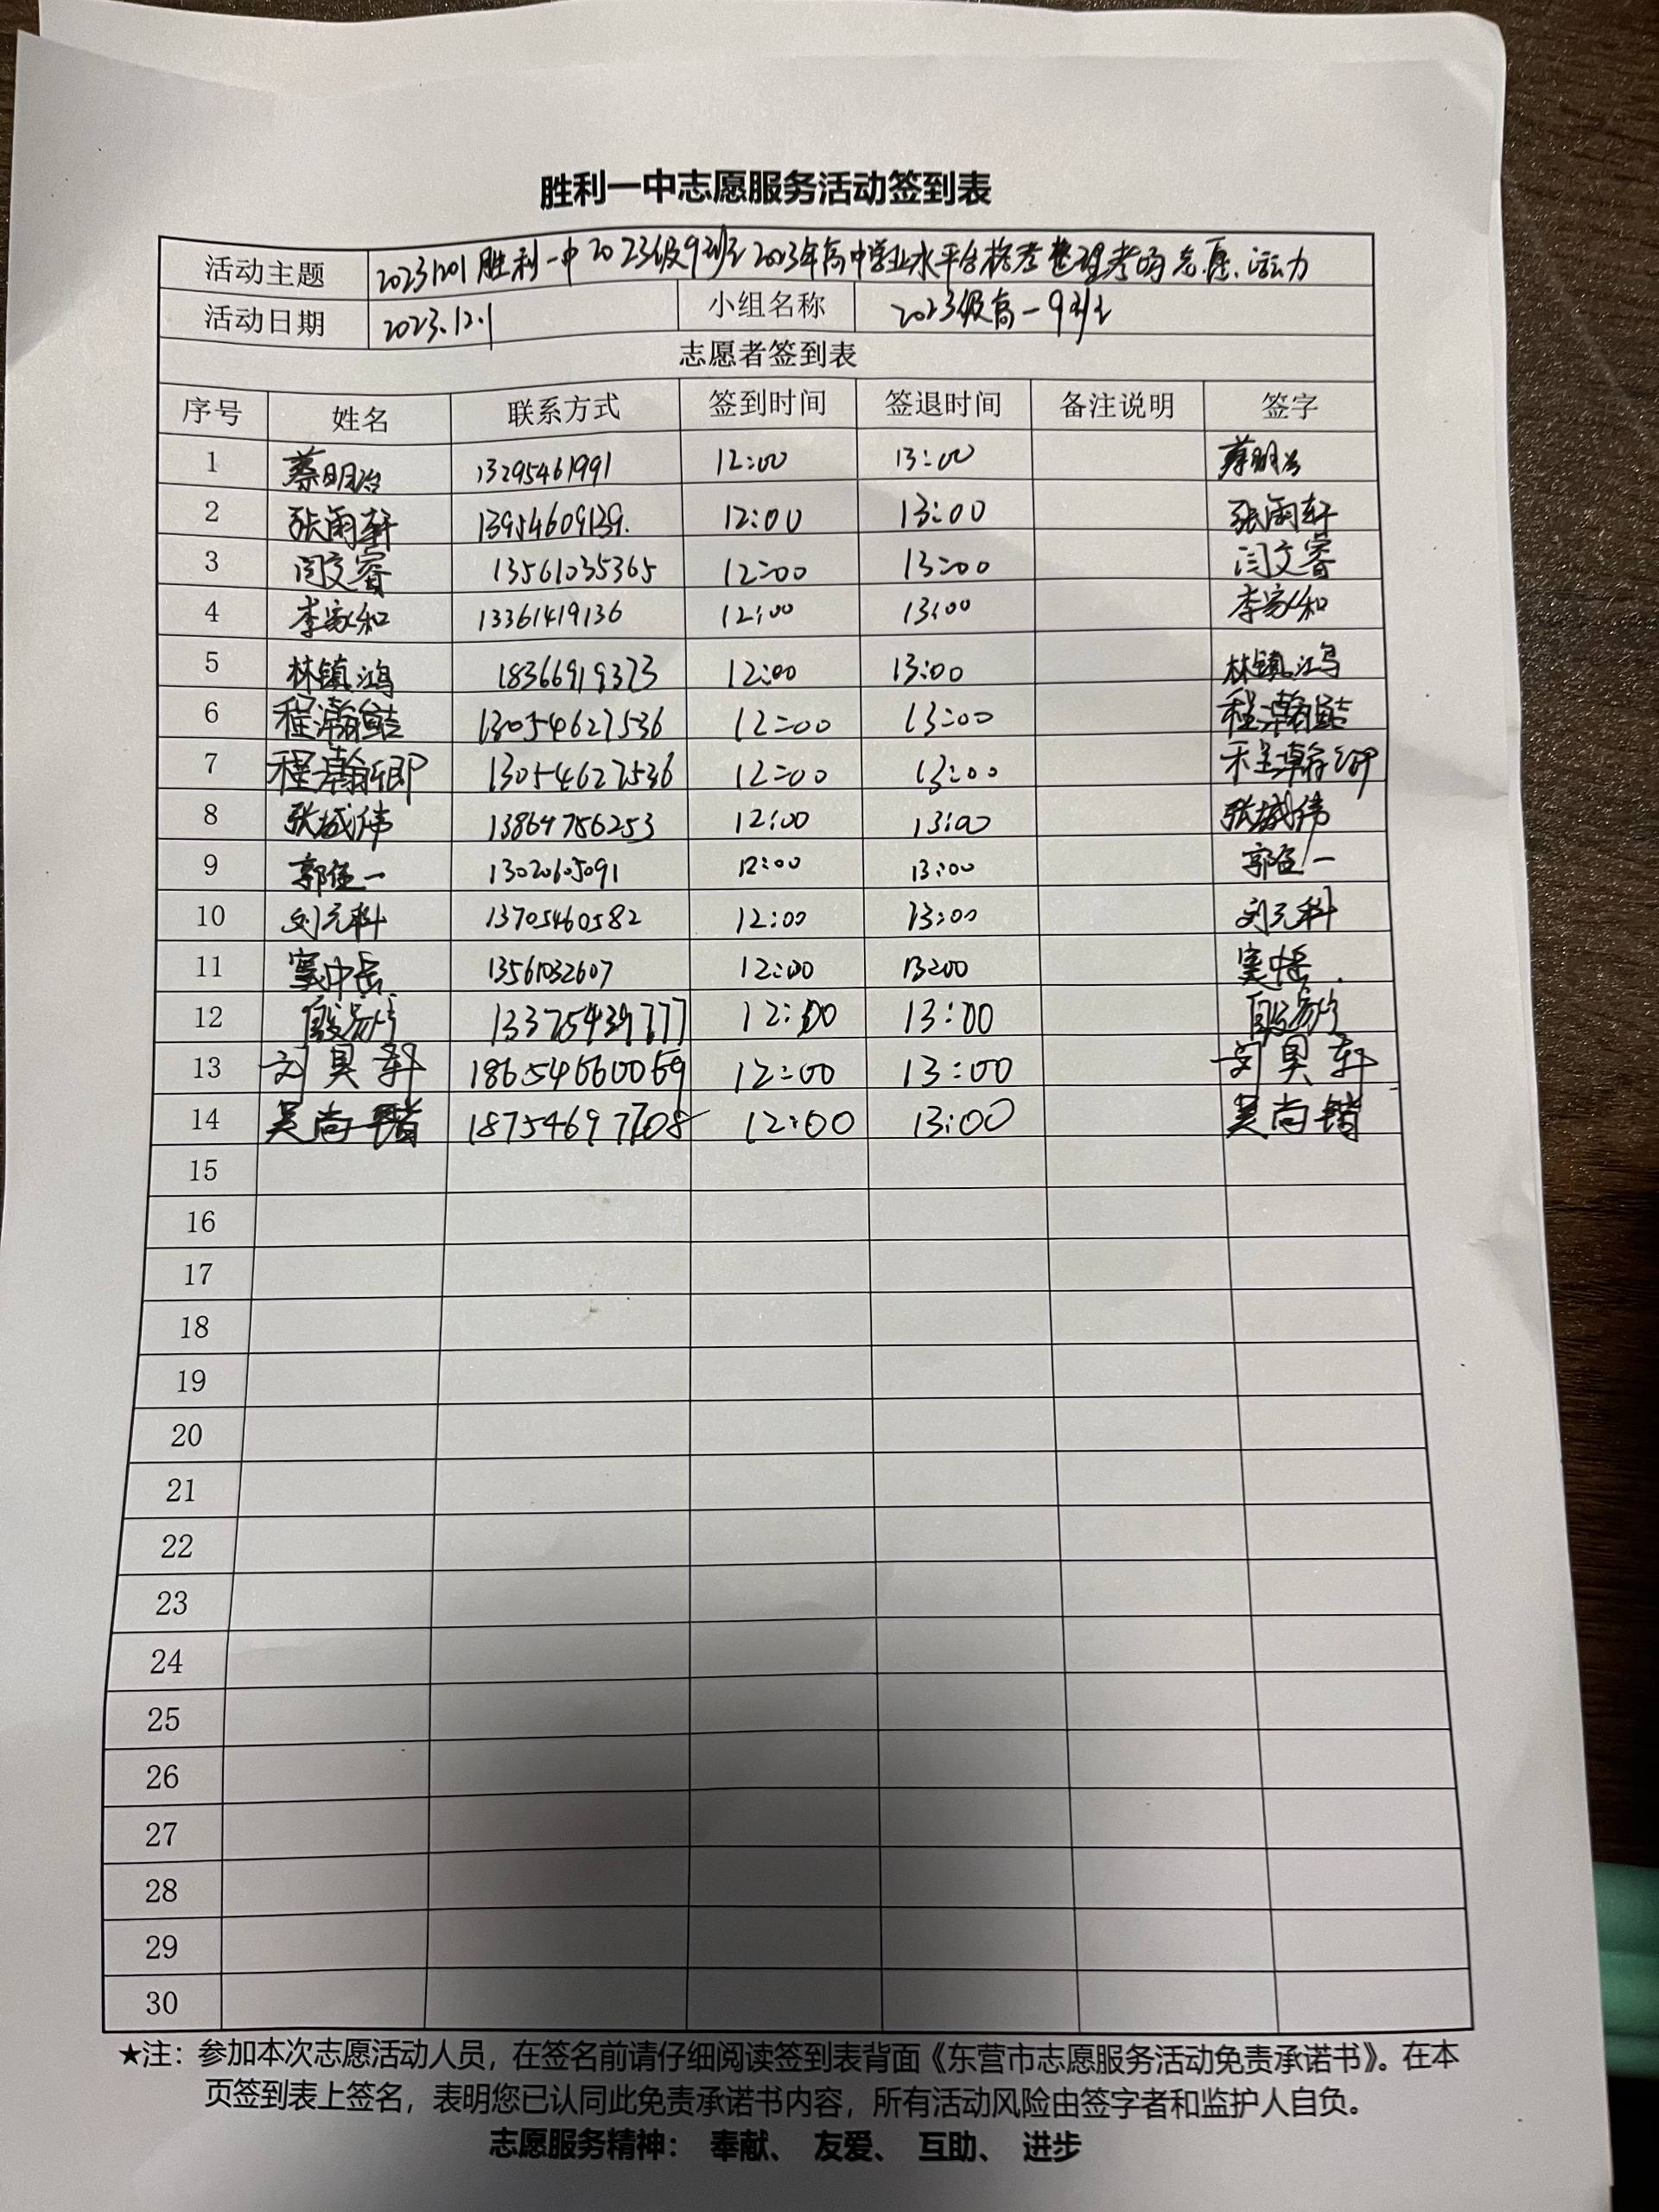 胜利一中志愿服务活动签到表
活动主题 20231201胜利一中2023级9班2023年高中学业水平合格考整理考场志愿活动
活动日期 2023.12.1 小组名称 2023级高一9班
志愿者签到表
序号 姓名 联系方式 签到时间 签退时间 备注说明 签字
1 蔡明治 13295461991 12:00 13:00 蔡明治
2 张雨轩 13954609139. 12:00 13:00 张雨轩
3 闫文睿 13561035365 12:00 13:00 闫文睿
4 李家和 13361419136 12:00 13:00 李家和
5 林镇鸿 18366919373 12:00 13:00 林镇鸿
6 程瀚喆 13054627536 12:00 13:00 程瀚喆
7 程瀚卿 13054627536 12:00 13:00 程瀚卿
8 张城伟 13864756253 12:00 13:00 张城伟
9 郭恒一 13020605091 12:00 13:00 郭恒一
10 刘元科 13705460582 12:00 13:00 刘元科
11 窦中岳 13561032607 12:00 13:00 窦中岳
12 13375439777 12:00 13:00
13 刘昊轩 18654660069 12:00 13:00 刘昊轩
14 吴尚锴 18754697708 12:00 13:00 吴尚锴
15
16
17
18
19
20
21
22
23
24
25
26
27
28
29
30
★注：参加本次志愿活动人员，在签名前请仔细阅读签到表背面《东营市志愿服务活动免责承诺书》。在本
页签到表上签名，表明您已认同此免责承诺书内容，所有活动风险由签字者和监护人自负。
志愿服务精神： 奉献、 友爱、 互助、 进步